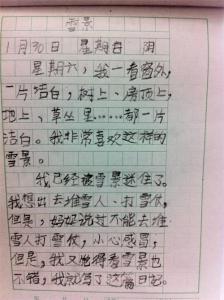 雪景
1月30日 星期日 阴
星期六，我一看窗外，
一片洁白，树上、房顶上，
地上、草丛里……都一片
洁白。我非常喜欢这样的
雪景。
我已经被雪景迷住了。
我想出去堆雪人、打雪仗，
但是，妈妈说过不能去堆
雪人打雪仗，小心感冒，
但是，我又觉得看雪景也
不错，我就写了这篇日记。